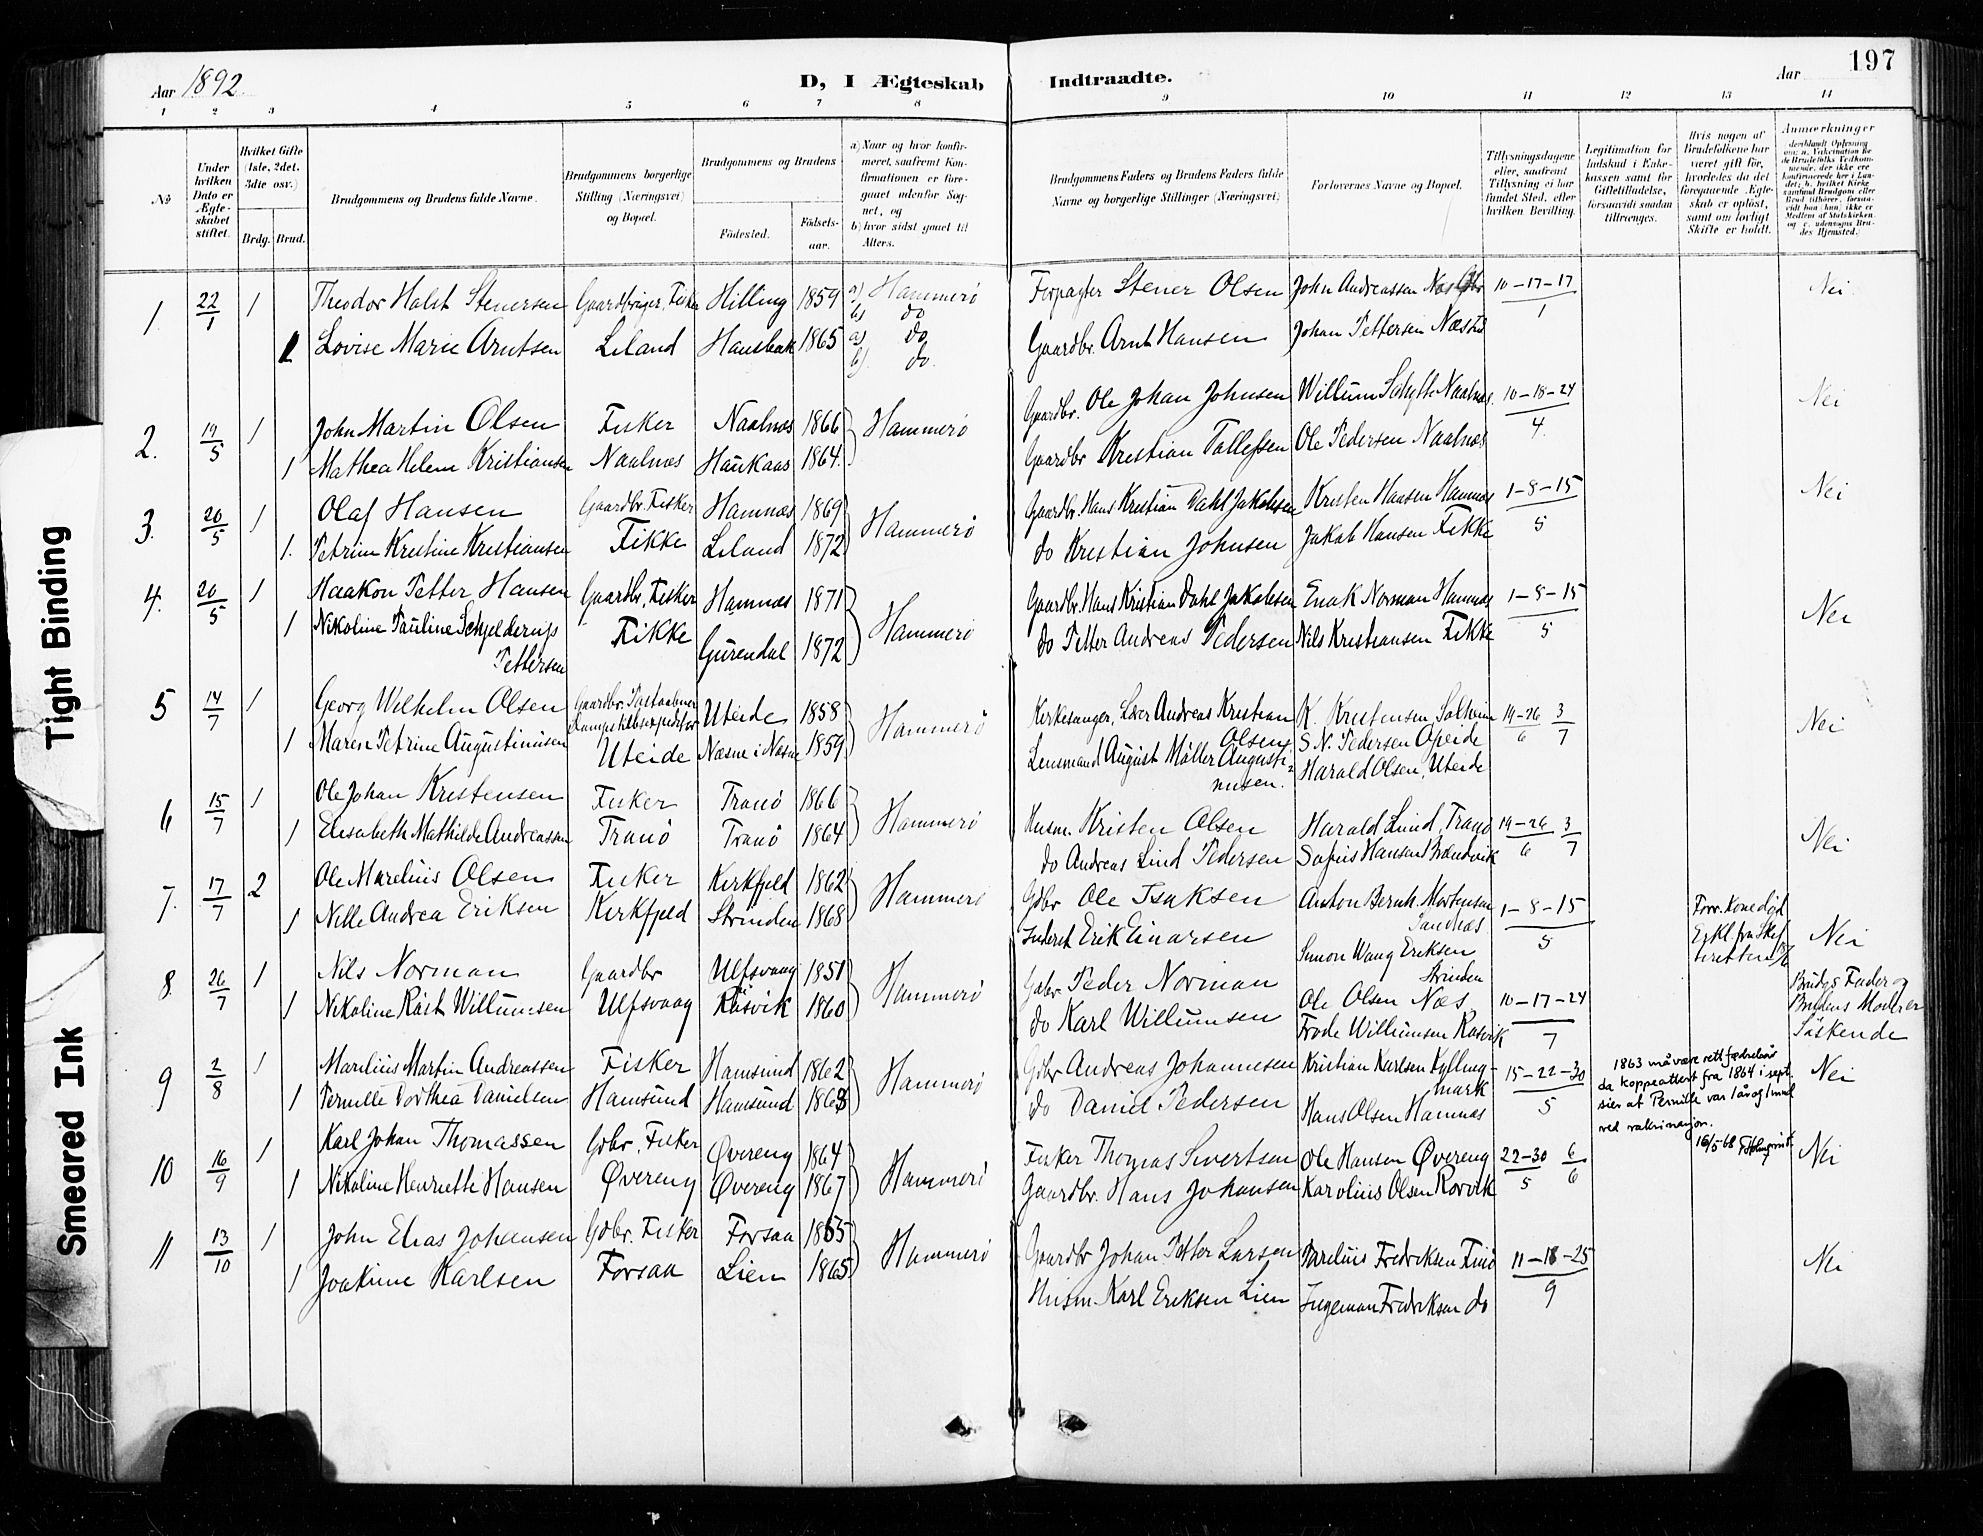 197
Aar 1892.
D, I Ægteskab Indtraadte.
Aar
1 2 3 4 5 6 7 8 9 10 11 12 13 14
No
Under hvilken Dato er Ægteskabet stiftet.
Hvilket Gifte (1ste, 2det, 3dte osv.)
Brdg. Brud.
Brudgommens og Brudens fulde Navne.
Brudgommens borgerlige Stilling (Næringsvei) og Bopæl.
Brudgommens og Brudens
Födested. Födselsaar.
a) Naar og hvor konfirmeret, saafremt Konfirmationen er foregaaet udenfor Sognet, og
b) hvor sidst gaaet til Alters.
Brudgommens Faders og Brudens Faders fulde Navne og borgerlige Stillinger (Næringsvei)
Forlovernes Navne og Bopæl.
Tillysningsdagene eller, saafremt Tillysning ei har fundet Sted, efter hvilken Bevilling.
Legitimation for Indskud i Enkekassen samt for Giftetilladelse, forsaavidt saadan tiltrænges.
Hvis nogen af Brudefolkene har været gift för, hvorledes da det foregaaende Ægteskab er oplöst, samt om lovligt Skifte er holdt.
Anmerkninger
1. 22/1 1 Theodor Holst Stenersen Gaardbruger, Fisker Hilling 1859 a) Hammerö b) do Forpagter Stener Olsen John Andreassen Næs Gbr 10-17-17/1 Nei
1 Lovise Marie Arntsen Leland Hansbak 1865 a) do b) do Gaardbr. Arnt Hansen Johan Pettersen Næs do
2. 19/5 1 John Martin Olsen Fisker Naalnæs 1866 Hammerö Gaardbr. Ole Johan Johnsen Willum Schytte Naalnæs 10-18-24/4 Nei
1 Mathea Helene Kristiansen Naalnæs Haukaas 1864. Gaardbr Kristian Tollefsen Ole Pedersen Naalnæs
3. 20/5 1 Olaf Hansen Gaardbr. Fisker Hamnæs 1869 Hammerö Gaardbr. Hans Kristian Dahl Jakobsen Kristen Hansen Hamnæs 1-8-15/5 Nei
1. Petrine Kristine Kristiansen Fikke Leland 1872 do Kristian Johnsen Jakob Hansen Fikke
4. 20/5 1 Haakon Petter Hansen Gaardbr, Fisker Hamnæs 1871 Hammerö Gaardbr. Hans Kristian Dahl Jakobsen Enok Norman Hamnæs 1-8-15/5 Nei
1 Nikoline Pauline Schjelderup Pettersen Fikke Gurendal 1872 do Petter Andreas Pedersen Nils Kristiansen Fikke
5 14/7 1 Georg Wilhelm Olsen Gaardbr. Postaabner Dampskibsexpeditör Uteide 1858 Hammerö Kirkesanger, Lærer Andreas Kristian Olsen K. Kristensen Solheim 19-26/6 3/7 Nei
1 Maren Petrine Augustinusen Uteide Næsne i Næsne 1859 Lensmand August Möller Augustinusen. S. N. Pedersen Opeide
Harald Olsen, Uteide
6 15/7 1 Ole Johan Kristensen Fisker Tranö 1866 Hammerö Husm. Kristen Olsen Harald Lind, Tranö 19-26/6 3/7 Nei
1 Elisabeth Mathilde Andreassen Tranö Tranö 1864 do Andreas Lind Pedersen Sofus Hansen Brændvik
7. 17/7 2 Ole Marelius Olsen Fisker Kirkfjeld 1862 Hammerö Gbr Ole Isaksen Anton Bernh. Mortensen Sandnæs 1-8-15/5 Forr. Kone död Erkl. fra Skifteretten Nei
1 Nelle Andrea Eriksen Kirkfjeld Strinden 1868 Inderst Erik Einarsen Simon Wang Eriksen Strinden
8. 26/7 1 Nils Norman Gaardbr Ulfsvaag 1851 Hammerö Gbr Peder Norman Ole Olsen Næs 10-17-24/7 Brudgs Fader og Brudens Moder er Söskende
1 Nikoline Röst Willumsen Ulfsvaag Rösvik 1860 do Karl Willumsen Frode Willumsen Rösvik
9 2/8 1 Marelius Martin Andreassen Fisker Hamsund 1862 Hammerö Gbr Andreas Johannesen Kristian Karlsen Kyllingmark 15-22-30/5 Nei
1 Pernille Dorthea Danielsen Hamsund Hamsund 1863 do Daniel Pedersen Hans Olsen Hamnæs
1863 må være rett fødselsår da koppeattest fra 1864 i sept. sier at Pernille var 1 år og 1 mnd ved vaksinasjon.
16/5-68
10 16/9 1 Karl Johan Thomassen Gbr. Fisker Øvereng 1864 Hammerö Fisker Thomas Sivertsen Ole Hansen Øvereng 22-30/5 6/6 Nei
1 Nikoline Henriette Hansen Øvereng Øvereng 1867 Gaardbr. Hans Johansen Karolius Olsen Rørvik
11 13/10 1 John Elias Johansen Gbr. Fisker Forsaa 1865 Hammerö Gaardbr Johan Petter Larsen Parelius Fredriksen Finö 11-18-25/9 Nei
1 Joakime Karlsen Forsaa Lien 1865 Husm. Karl Eriksen Lien Ingeman Fredriksen do
Tight Binding
Smeared Ink